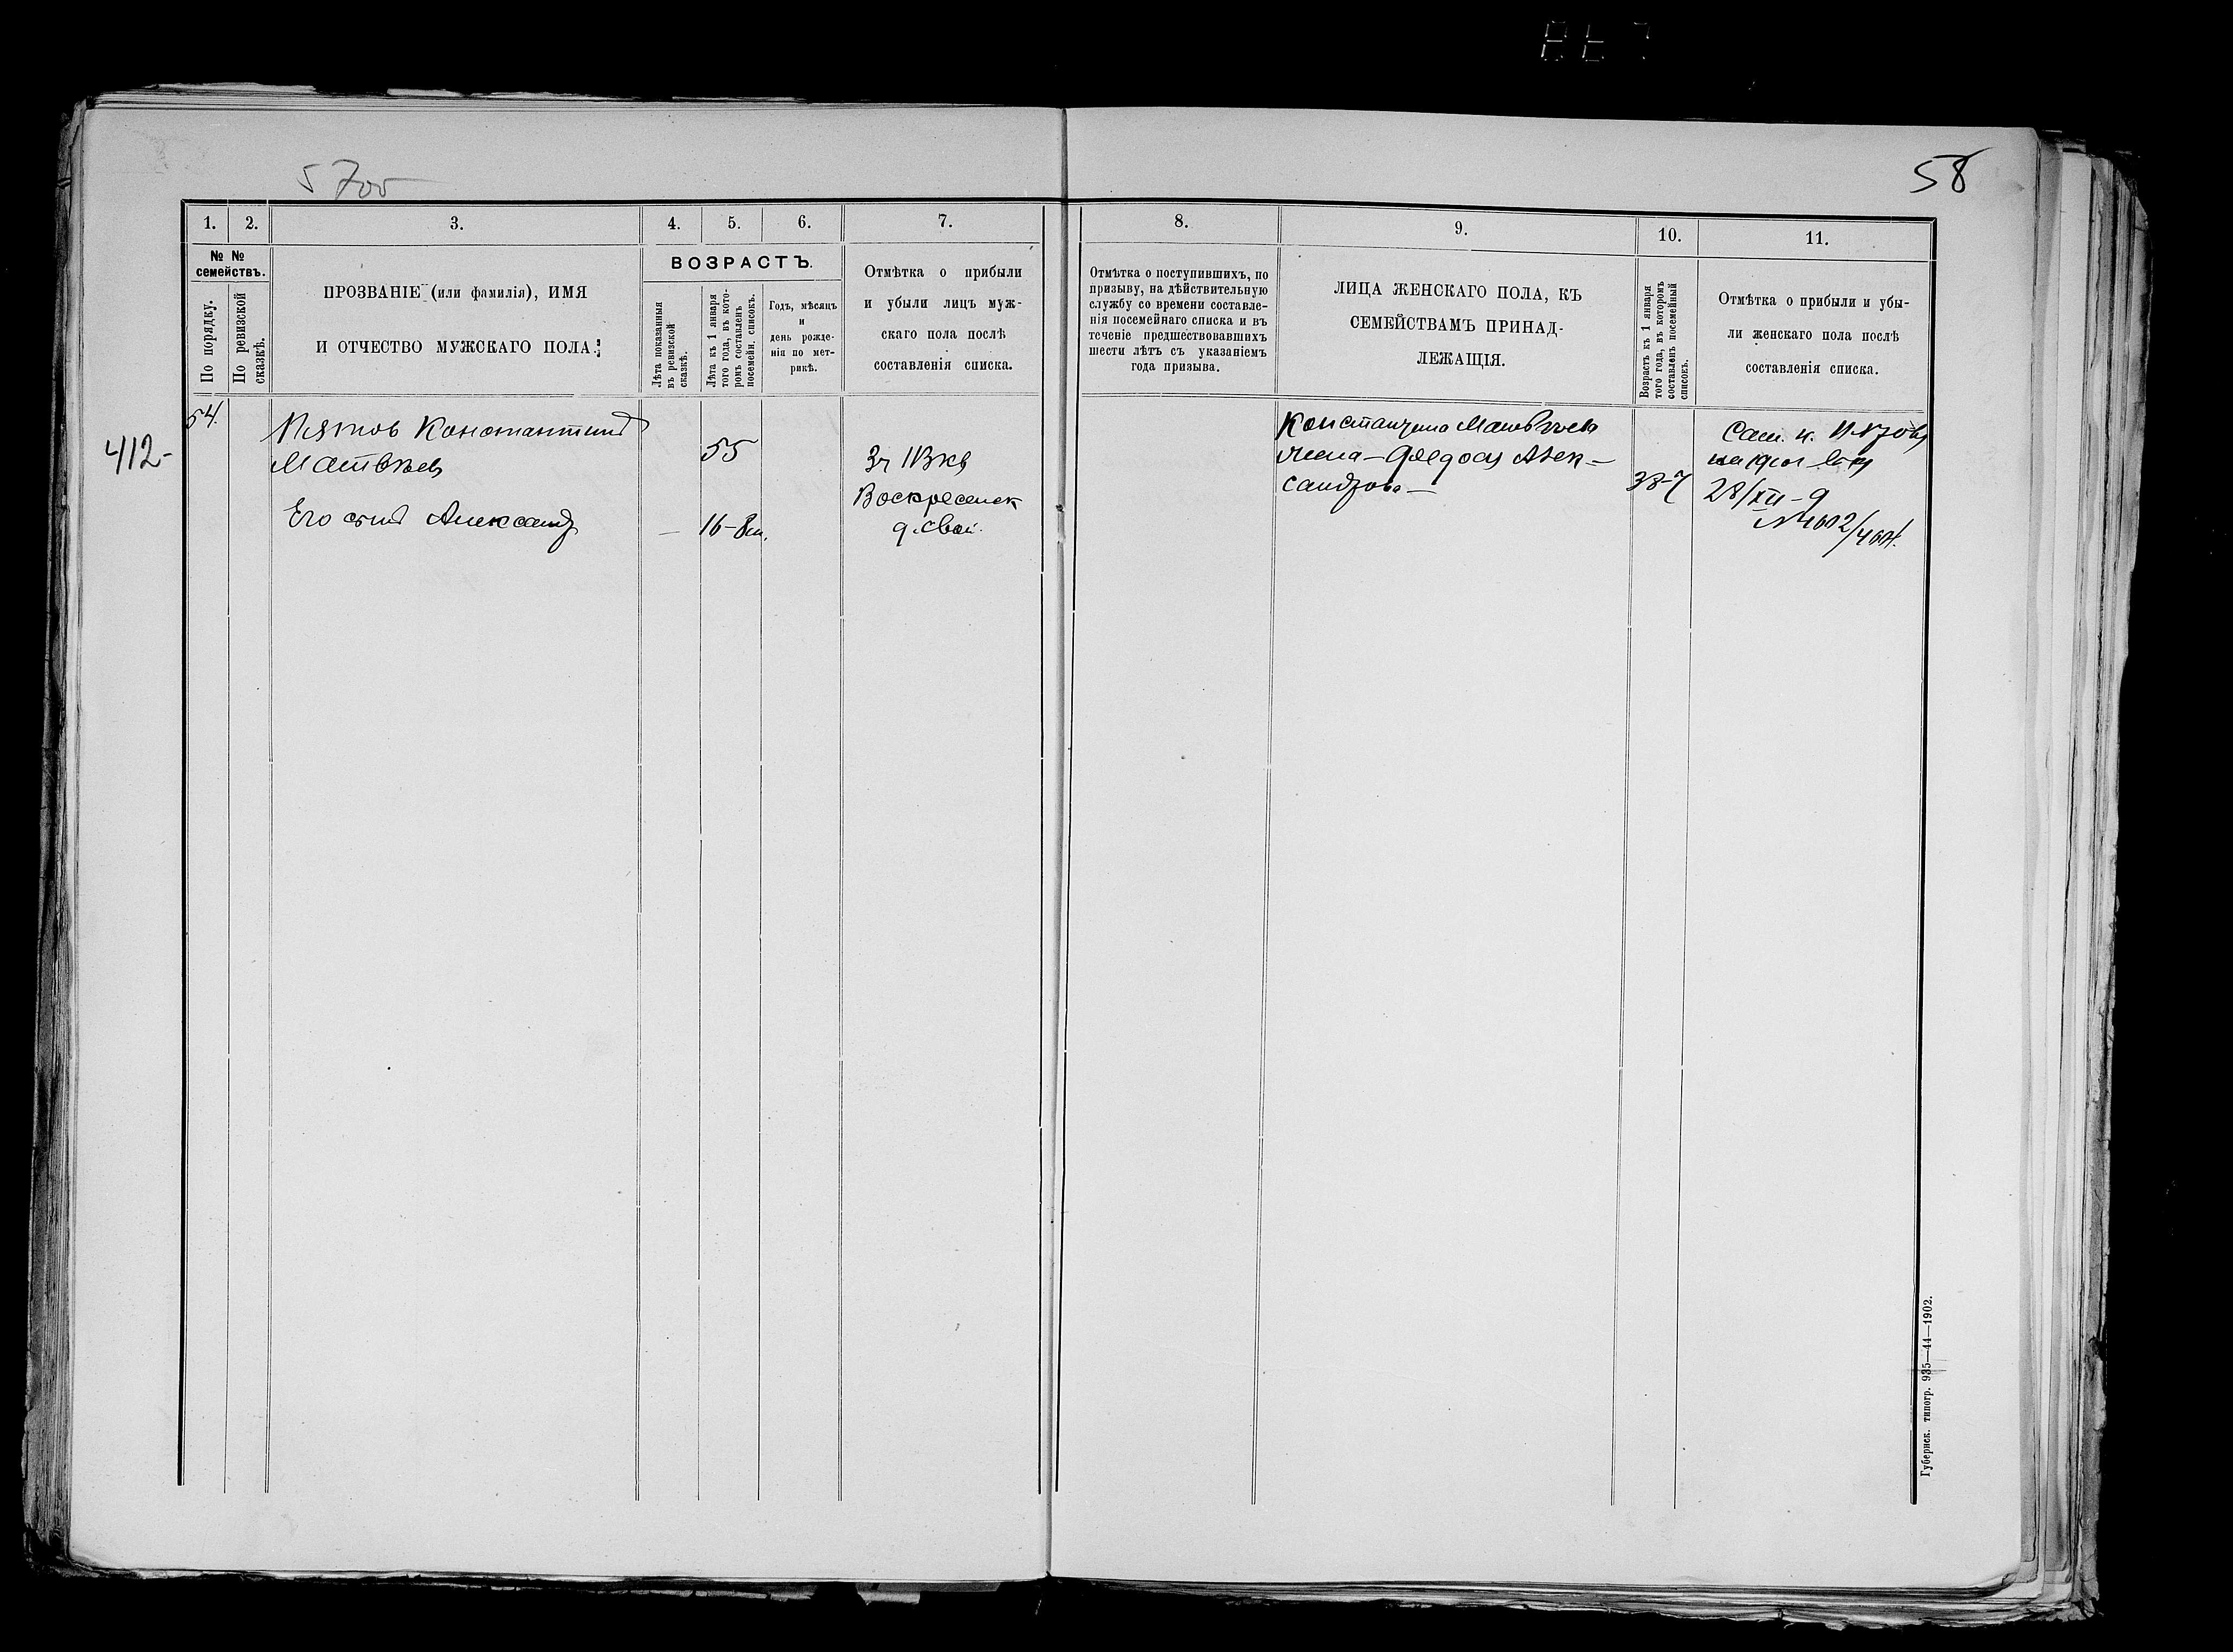 5700
58
1.
2.
3.
4.
5.
6.
7.
8.
9.
10.
11.
№ №
семействъ.
По порядку.
По ревизской
сказкѣ.
ПРОЗВАНІЕ (или фамилія), ИМЯ
И ОТЧЕСТВО МУЖСКАГО ПОЛА.
ВОЗРАСТЪ.
Лѣта показанныя
въ ревизской
сказкѣ.
Лѣта къ 1 января
того года, въ кото-
ромъ составленъ
посемейн. списокъ.
Годъ, мѣсяцъ
и
день рожде-
нія по мет-
рикѣ.
Отмѣтка о прибыли
и убыли лицъ муж-
скаго пола послѣ
составленія списка.
Отмѣтка о поступившихъ, по
призыву, на дѣйствительную
службу со времени составле-
нія посемейнаго списка и въ
теченіе предшествовавшихъ
шести лѣтъ съ указаніемъ
года призыва.
ЛИЦА ЖЕНСКАГО ПОЛА, КЪ
СЕМЕЙСТВАМЪ ПРИНАД-
ЛЕЖАЩІЯ.
Возрастъ къ 1 января
того года, въ которомъ
составленъ посемейный
списокъ.
Отмѣтка о прибыли и убы-
ли женскаго пола послѣ
составленія списка.
412-
54.
Пятовъ Константинъ
Матвѣевъ
55
3ч 113кв
Воскресенск
д. свой.
Его сынъ Александръ
— 16-8м.
Константина Матвѣева
жена - Федосья Алек-
сандрова —
38-7
28/XII-9
№4602/4604.
Губернск. типогр. 935—44—1902.